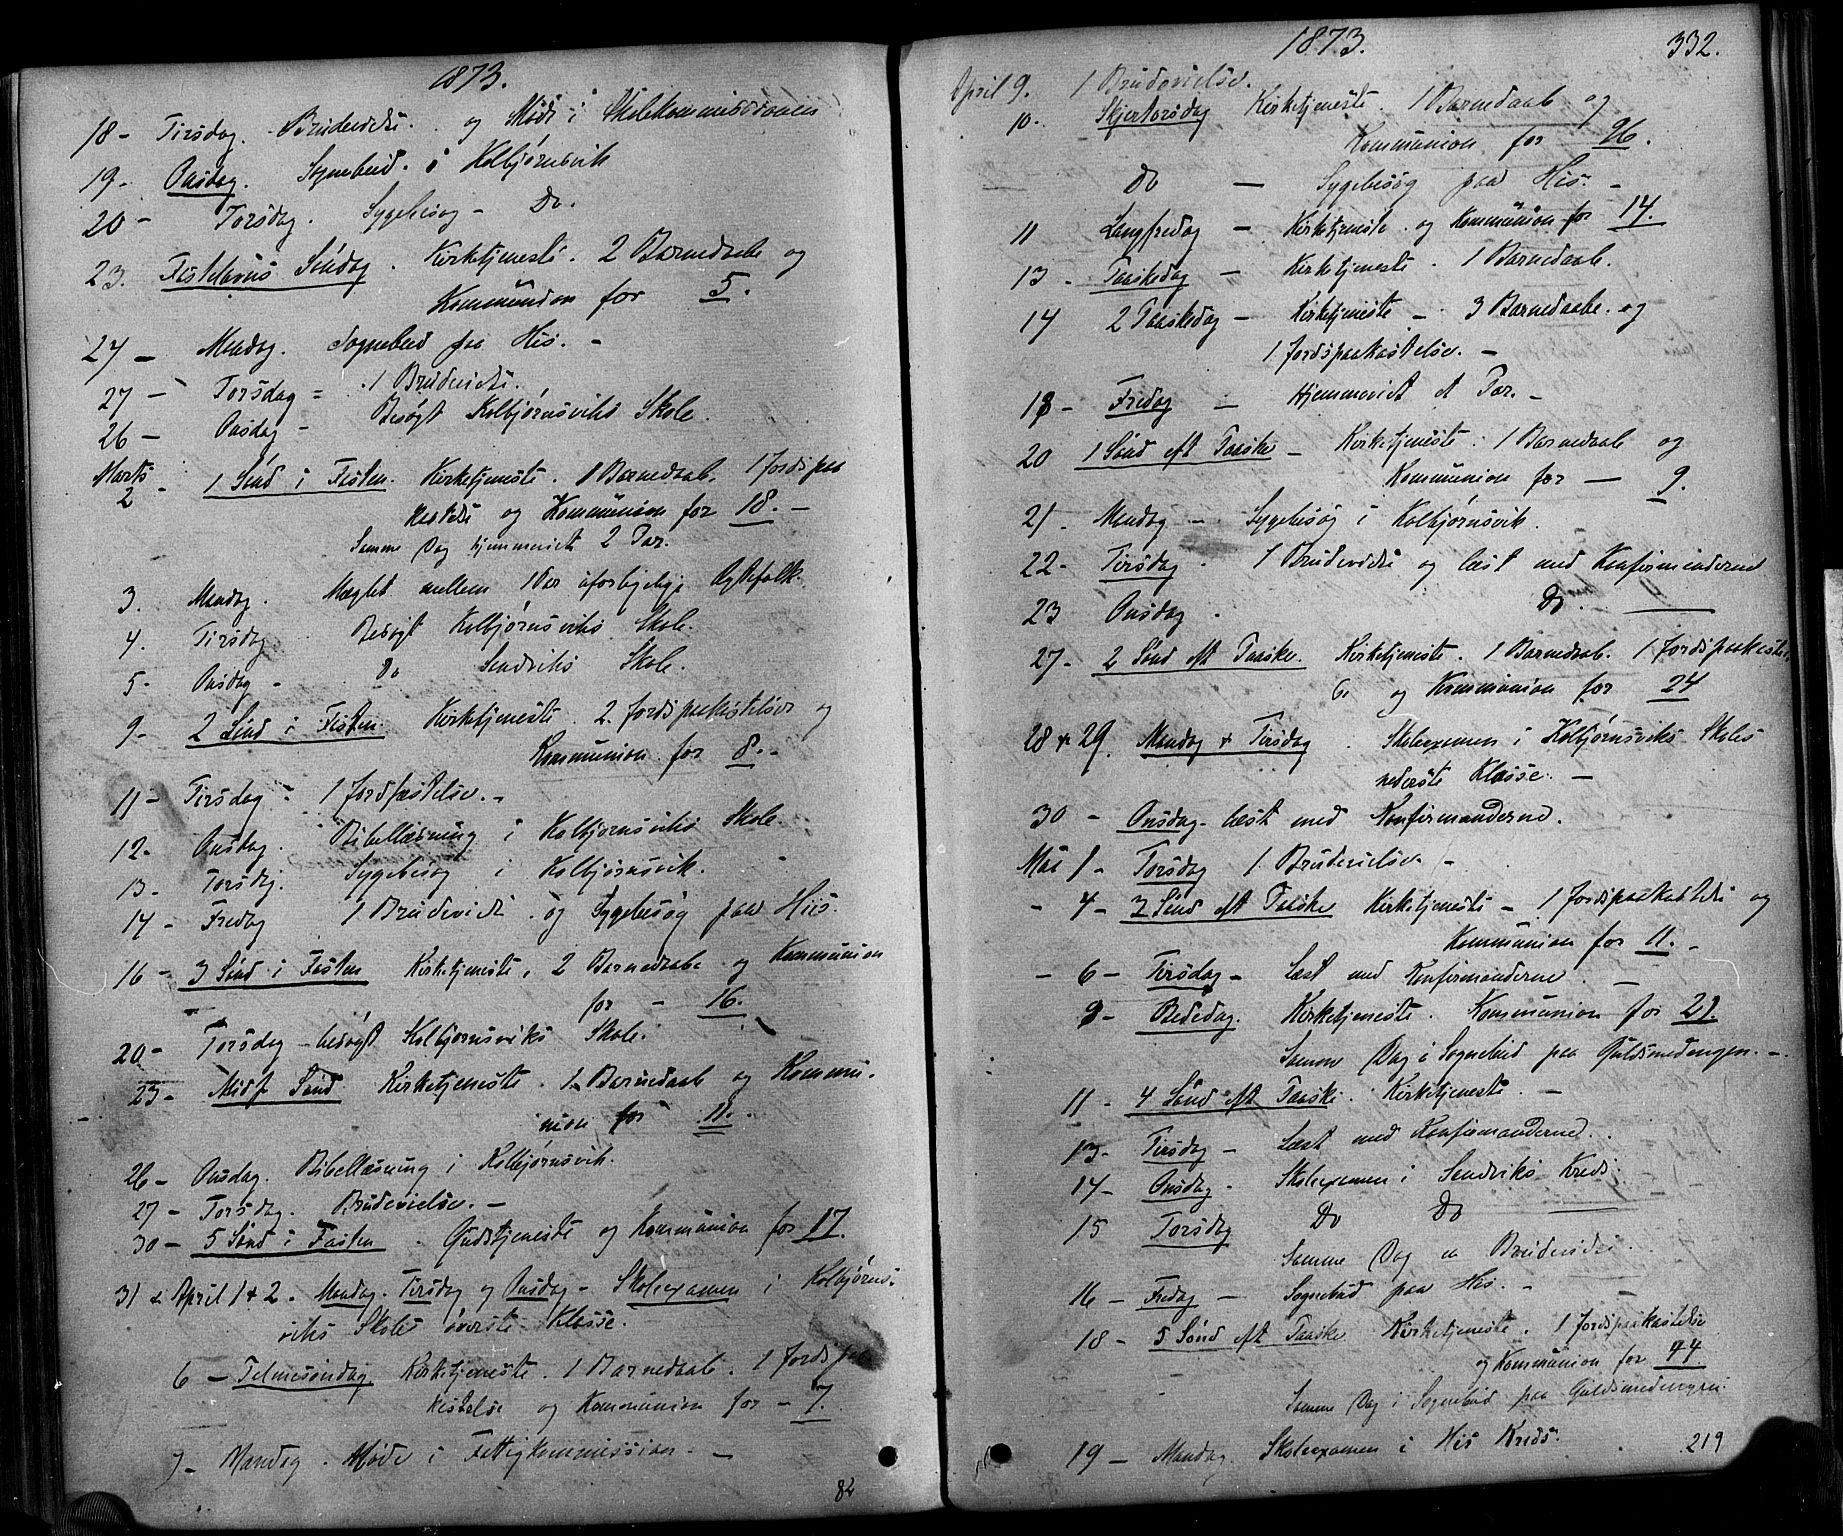 1873.
18 - Tirsdag. Brudevielse. og Møde i Skolekommissionen
19 - Onsdag. Sognebud. i Kolbjørnsvik
20 - Torsdag. Sygebesøg - Do.
23. Fastelavns Søndag. Kirketjeneste. 2 Barnedaabe og
Kommunion for 5.
24 - Mandag. Sognebud paa His. -
27 - Torsdag = 1 Brudevielse.
26 - Onsdag - Besøgt Kolbjørnsviks Skole.
Marts
2 - 1 Sønd i Fasten. Kirketjeneste. 1 Barnedaab. 1 Jordspaa
kastelse og Kommunion for 18. -
Samme Dag hjemmeviet 2 Par.
3. Mandag. Mæglet mellem 1 Par uforligelige Ægtefolk.
4. Tirsdag Besøgt Kolbjørnsviks Skole.
5 - Onsdag - Do Sandviks Skole.
9 - 2 Sønd i Fasten. Kirketjeneste. 2. Jordspaakastelser og
Kommunion for 8. -
11 - Tirsdag - 1 Jordfæstelse. -
12 - Onsdag. Bibellæsning i Kolbjørnsviks Skole.
13 - Torsdag. Sygebesøg i Kolbjørnsvik.
14 - Fredag 1 Brudevielse. og Sygebesøg paa Hiis.
16 - 3 Sønd i Fasten Kirketjeneste. 2 Barnedaabe og Kommunion
for - 16.
20 - Torsdag - besøgt Kolbjørnsviks Skole.
23 - Midf Sønd Kirketjeneste. 1 Barnedaab og Kommu-
nion for 11.
26 - Onsdag. Bibellæsning i Kolbjørnsvik.
27 - Torsdag. Brudevielse. -
30 - 5 Sønd i Fasten. Gudstjeneste og Kommunion for 17.
31 & April 1 + 2. Mandag. Tirsdag og Onsdag - Skoleexamen i Kolbjørns-
viks Skoles øverste Klasse.
6 - Palmesøndag Kirketjeneste. 1 Barnedaab. 1 Jordspaa
kastelse og Kommunion for - 7.
7 - Mandag. Møde i Fattigkommissionen. -
82
1873. 332.
April 9. 1 Brudevielse.
10. Skjertorsdag Kirketjeneste. 1 Barnedaab og
Kommunion for 26.
Do - Sygebesøg paa His. -
11 Langfredag - Kirketjeneste. og Kommunion for 14.
13 - Paaskedag - Kirketjeneste. 1 Barnedaab.
14 2 Paaskedag - Kirketjeneste - 3 Barnedaabe. og
1 Jordspaakastelse. -
18 - Fredag - Hjemmeviet et Par. -
20 1 Sønd eft Paaske - Kirketjeneste. 1 Barnedaab og
Kommunion for - 9.
21. Mandag - Sygebesøg i Kolbjørnsvik.
22 - Tirsdag. 1 Brudevielse og læst med Konfirmanderne
23 Onsdag. Do.
27 - 2 Sønd eft Paaske. Kirketjeneste. 1 Barnedaab. 1 Jordspaakastel-
se og Kommunion for 24
28 + 29. Mandag + Tirsdag. Skoleexamen i Kolbjørnsviks Skoles
nederste Klasse. -
30 - Onsdag - læst med Konfirmanderne.
Mai 1 - Torsdag 1 Brudevielse. -
- 4 - 3 Sønd eft Paaske Kirketjeneste - 1 Jordspaakastelse og
Kommunion for 11. -
- 6 - Tirsdag - Læst med Konfirmanderne. -
9 - Bededag. Kirketjeneste. Kommunion for 21.
Samme Dag i Sognebud paa Guldsmedengen. -
11 - 4 Sønd eft Paaske. Kirketjeneste. -
13 - Tirsdag - Læst med Konfirmanderne.
14 - Onsdag - Skoleexamen i Sandviks Kreds.
15 Torsdag Do Do
Samme Dag en Brudevielse.
16 - Fredag - Sognebud paa His. -
18 - 5 Sønd eft Paaske Kirketjeneste. 1 Jordspaakastelse
og Kommunion for 44
Samme Dag i Sognebud paa Guldsmedengen
19 - Mandag. Skoleexamen i His Kreds.
219